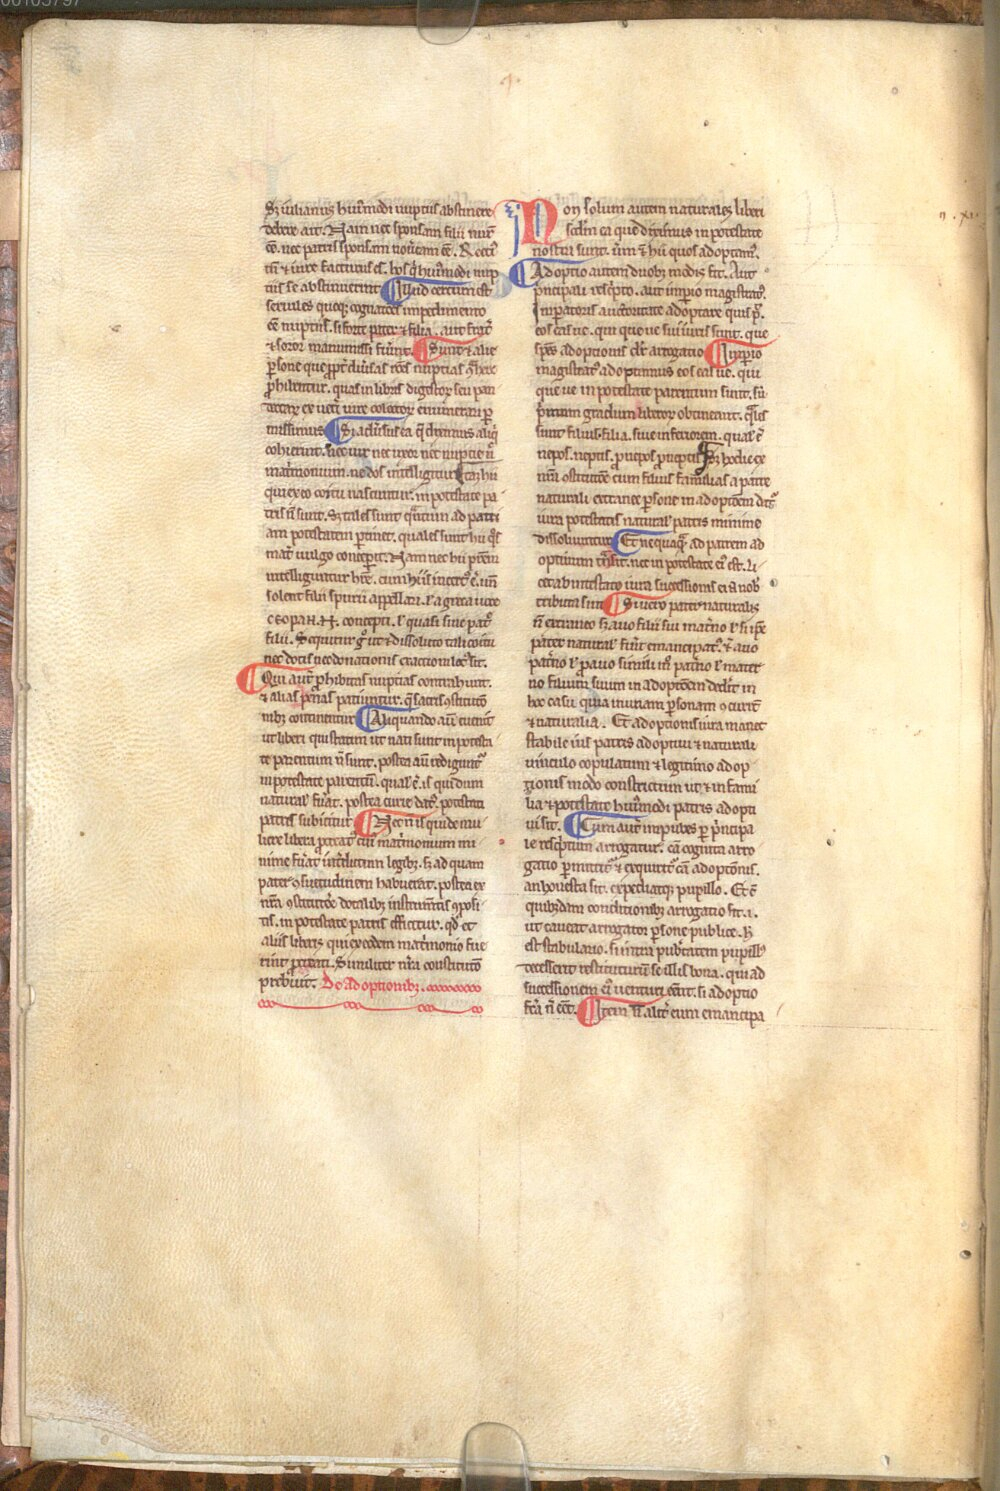 Sʒ iulianus huiꝰmodi nuptiis abstinere
debere ait. Nam nec sponsam filii nurū
eē. nec patris sponsam nouercam eē. Recciꝰ
tn̄ ⁊ iure facturos eē. hos q̄ huiꝰmodi nup
tiis se abstinuerint. Illud certum est
seruiles quoqʒ cognatōes impedimento
eē nuptiis. si forte pater ⁊ filia. aut frater
⁊ soror manumissi fuerint. Sunt ⁊ alie
ꝑsone que ꝓpter diuersas rōes nuptias ꝯthere
ꝓhibentur. quas in libris digestorʒ seu pan
dectarʒ ex ueteri iure collectorʒ enumerari ꝑ
missimus. Si aduersus ea q̄ diximus aliqi
cohierint. nec uir nec uxor nec nuptie n̄
matrimonium. nec dos intelligitur. Itaqʒ hii
qui ex eo coitu nascuntur. in potestate pa
tris n̄ sunt. Sʒ tales sunt qntum ad patri
am potestatem ꝑtinet. quales sunt hii qs
mat̄ uulgo concepit. Nam nec hii patrem
intelliguntur hre. cum hiis incertꝰ ē. un̄
solent filii spurii appellari. ł a greca uoce
concepti. ł quasi sine patre
filii. Sequitur gͦ ut ⁊ dissoluto tali coitu
nec dotis nec donationis exactioni locꝰ sit.
Qui aut̄ ꝓhibitas nuptias contrahunt.
⁊ alias penas patiuntur. q̄ sacris ꝯstitutō
nibʒ continentur. Aliquando aū euenit
ut liberi qui statim ut nati sunt in potesta
te parentum n̄ sunt. postea aū redigunt᷑
in potestate parentū. qualꝭ ē. is qui dum
naturalꝭ fuat. postea curie datꝰ. potestati
patris subicitur. Nec n̄ is qui de mu
liere libera ꝓcreatꝰ cuiꝰ matrimonium mi
nime fuat int̄dictum legibʒ. sʒ ad quam
pater ꝯsuetudinem habuerat. postea ex
nr̄a ꝯstitutōe dotalibʒ instrumtis ꝯposi
tis. in potestate patris efficitur. qd̓ et
aliis liberis qui ex eodem matrimonio fue
rint ꝓcreati. Similiter nr̄a constitutio
prebuit. De adoptionibʒ.
Non solum autem naturales liberi
scdm ea que diximus in potestate
nostra sunt. uerum ⁊ hii quos adoptamꝰ.
Adoptio autem duobʒ modis fit. Aut
principali rescpto. aut imperio magistratꝰ.
Imperatoris auctoritate adoptare quis pōt
eos eas ue. qui que ue sui iuris sunt. que
spēs adoptionis dr̄ arrogatio. Imperio
magistratꝰ adoptamus eos eas ue. qui
que ue in potestate parentum sunt. siue
primum gradum liberorʒ obtineant. qualis
sunt filius. filia. siue inferiorem. qualis ē
nepos. neptis. ꝓnepos ꝓneptis. Sʒ hodie ex
nr̄a ꝯstitutōe cum filius familias a patre
naturali extranee ꝑsone in adoptōem dat᷑
iura potestatis naturalꝭ patris minime
dissoluuntur. Et nequaq̄ ad patrem ad
optiuum tnsit. nec in potestate eiꝰ est. li
cet ab intestato iura successionis ei a nobis
tributa sint. Si uero pater naturalis
n̄ extraneo sʒ auo filii sui mat̄no ł si ipse
pater naturalꝭ fuit emancipatꝰ. ⁊ auo
pat̄no ł ꝓauo simili mͦ pat̄no ł mater
no filium suum in adoptōem dederit in
hoc casu quia in unam ꝑsonam ꝯcurrūt
⁊ naturalia. Et adoptionis iura manet
stabile ius patris adoptiui ⁊ naturali
uinculo copulatum ⁊ legitimo adop
tionis modo constrictum ut ⁊ in fami
lia ⁊ potestate huiꝰmodi patris adopti
ui sit. Cum aut̄ impubes ꝑ principa
le rescptum arrogatur. cā cognita arro
gatio ꝑmittit᷑ ⁊ exquirit᷑ cā adoptōnis.
an honesta sit. expediatqʒ pupillo. Et ē
quibʒdam conditionibʒ arrogatio fit. i.
ut caueat arrogator ꝑsone publice. h̄
est tabulario. si intra pubertatem pupillꝰ
decesserit restituturum se illis bona. qui ad
successionem eiꝰ uenturi eent. si adoptio
fc̄a n̄ eet. Item n̄ alit̄ eum emancipa